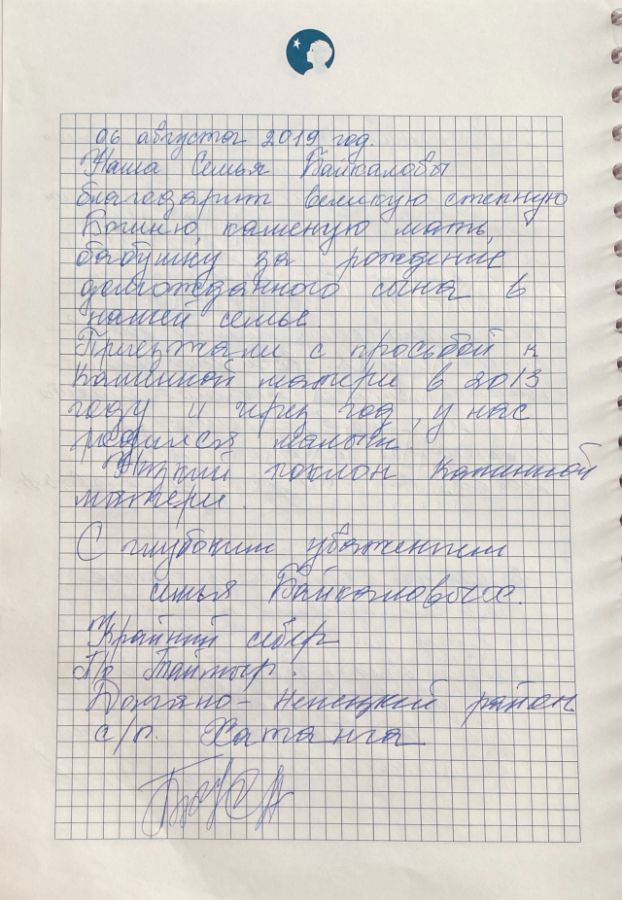 06 августа 2019 год.
Наша Семья Байкаловы
благодарит великую степную
Богиню, каменую мать,
бабушку за рождение
долгожданного сына в
нашей семье.
Приезжали с просьбой к
Каменной матери в 2013
году и через год, у нас
родился малыш.
Низкий поклон Каменной
матери.
С глубоким уважением
семья Байкаловых.
Крайний север
П/о Таймыр.
Долгано-Ненецкий район
с/п. Хатанга